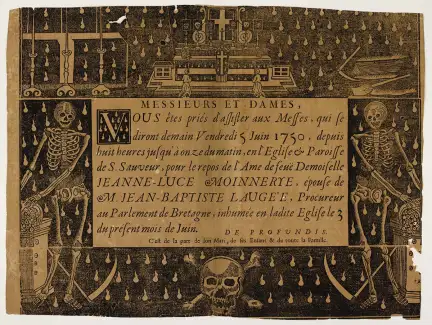 MESSIEURS ET DAMES,
VOUS êtes priés d'assister aux Messes, qui se
diront demain Vendredi 5 Juin 1750, depuis
huit heures jusqu'à onze du matin, en l'Eglise & Paroisse
de S. Sauveur, pour le repos de l'Ame de feuë Demoiselle
JEANNE-LUCE MOINNERYE, épouse de
M. JEAN-BAPTISTE LAUGÉ, Procureur
au Parlement de Bretagne, inhumée en ladite Eglise le 3
du present mois de Juin.
DE PROFUNDIS.
C'est de la part de son Mari, de ses Enfans & de toute la Famille.